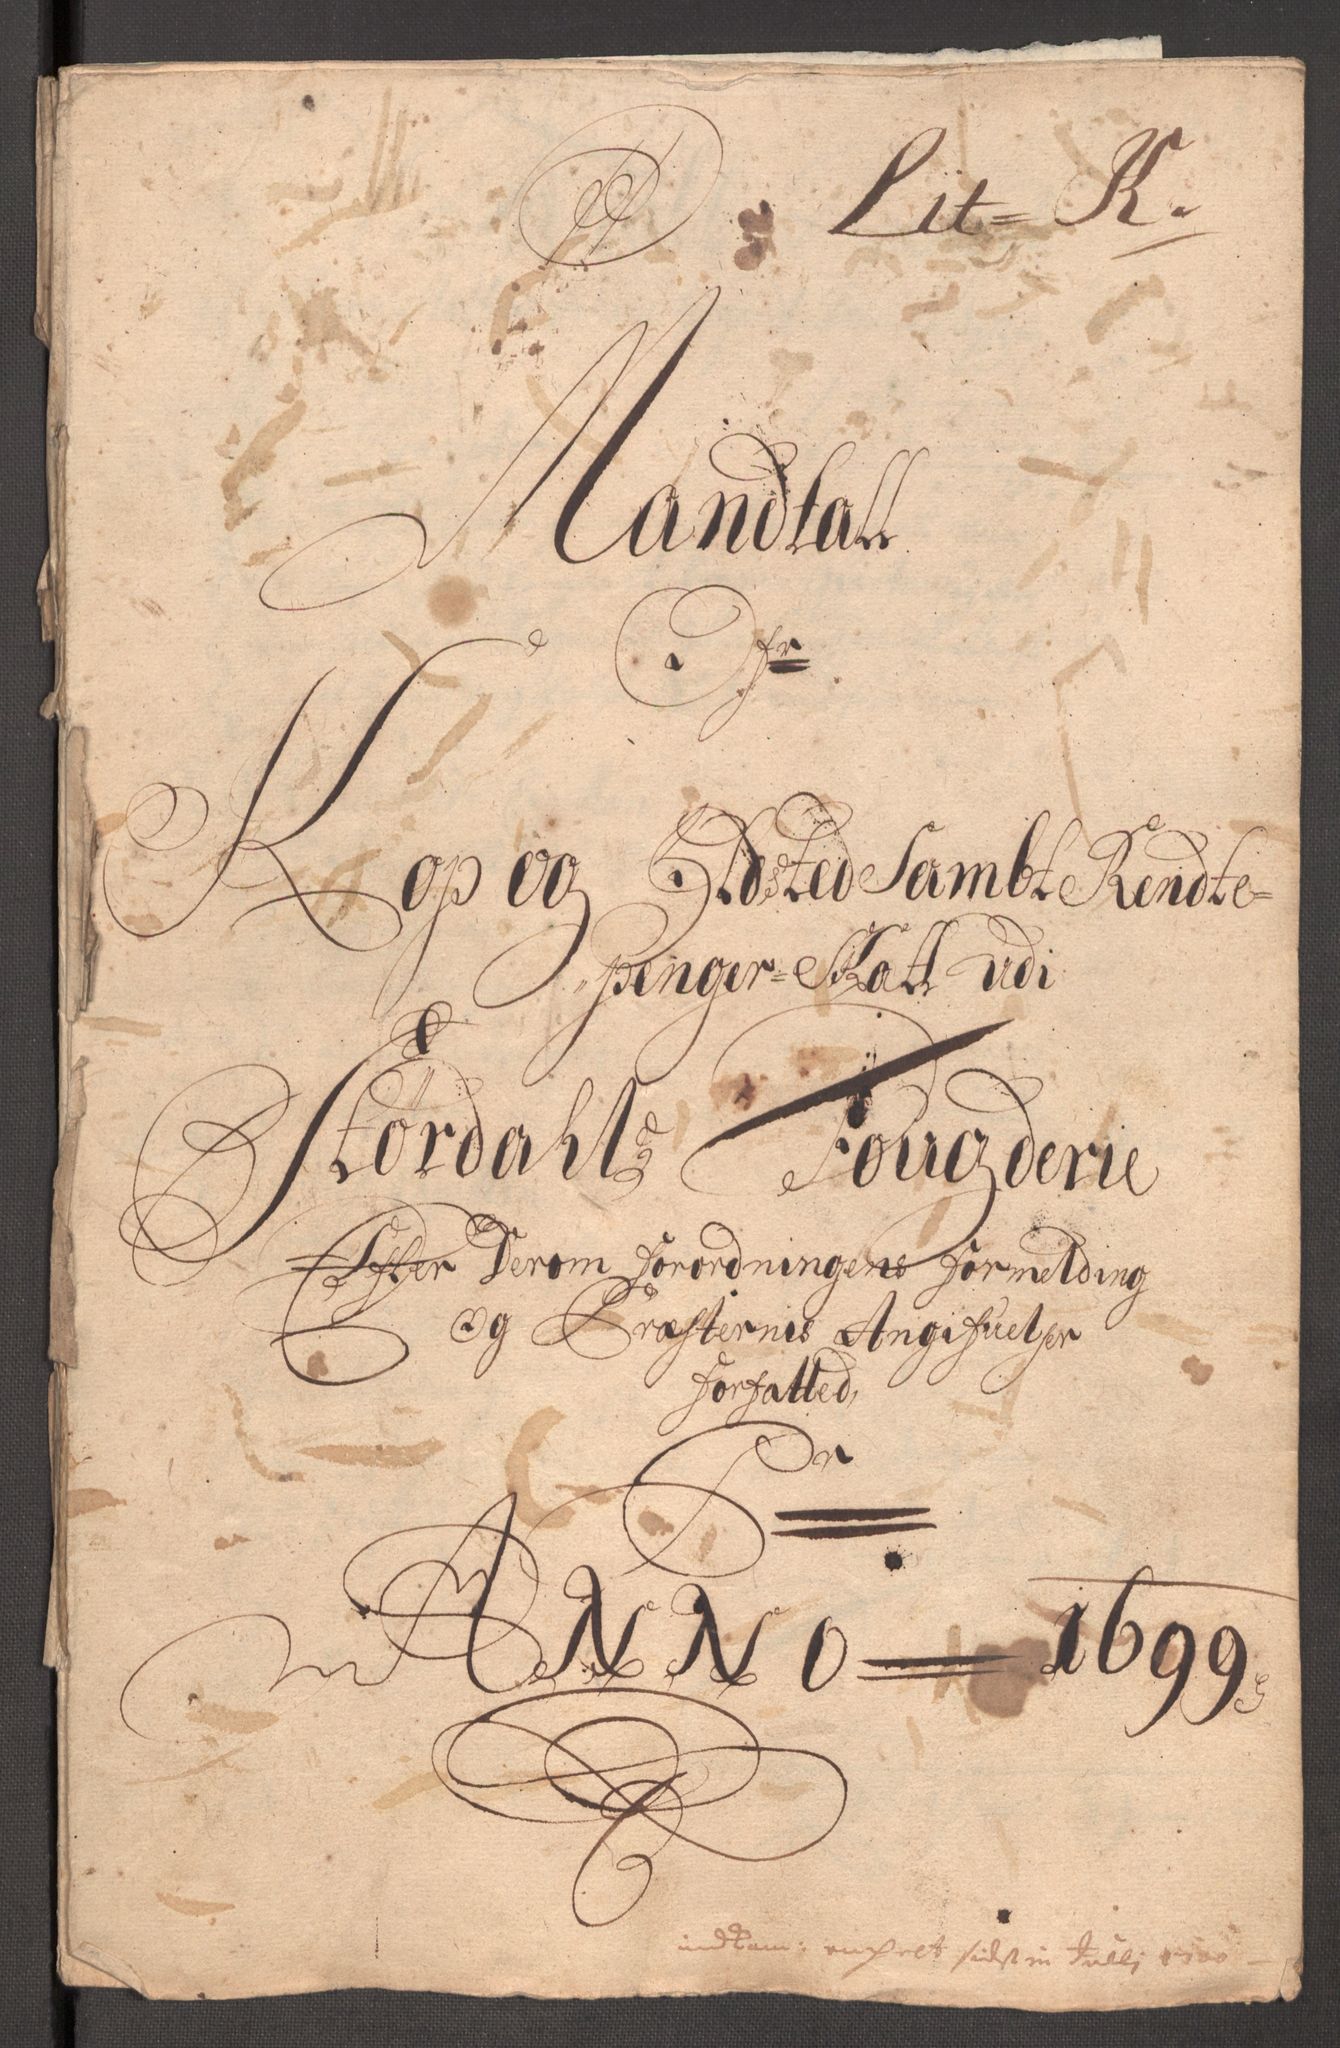 Lit= K.
Mandtall
fr
Kop og Ildsted Sambt Rendte=
penger=Skatt udi
Størdahls Fougderie
Efter Derom forordningens formelding
og Præsternis Angifuelser
forfatted,
Pr
ANNo 1699
indkom: sidst in Julij 1700